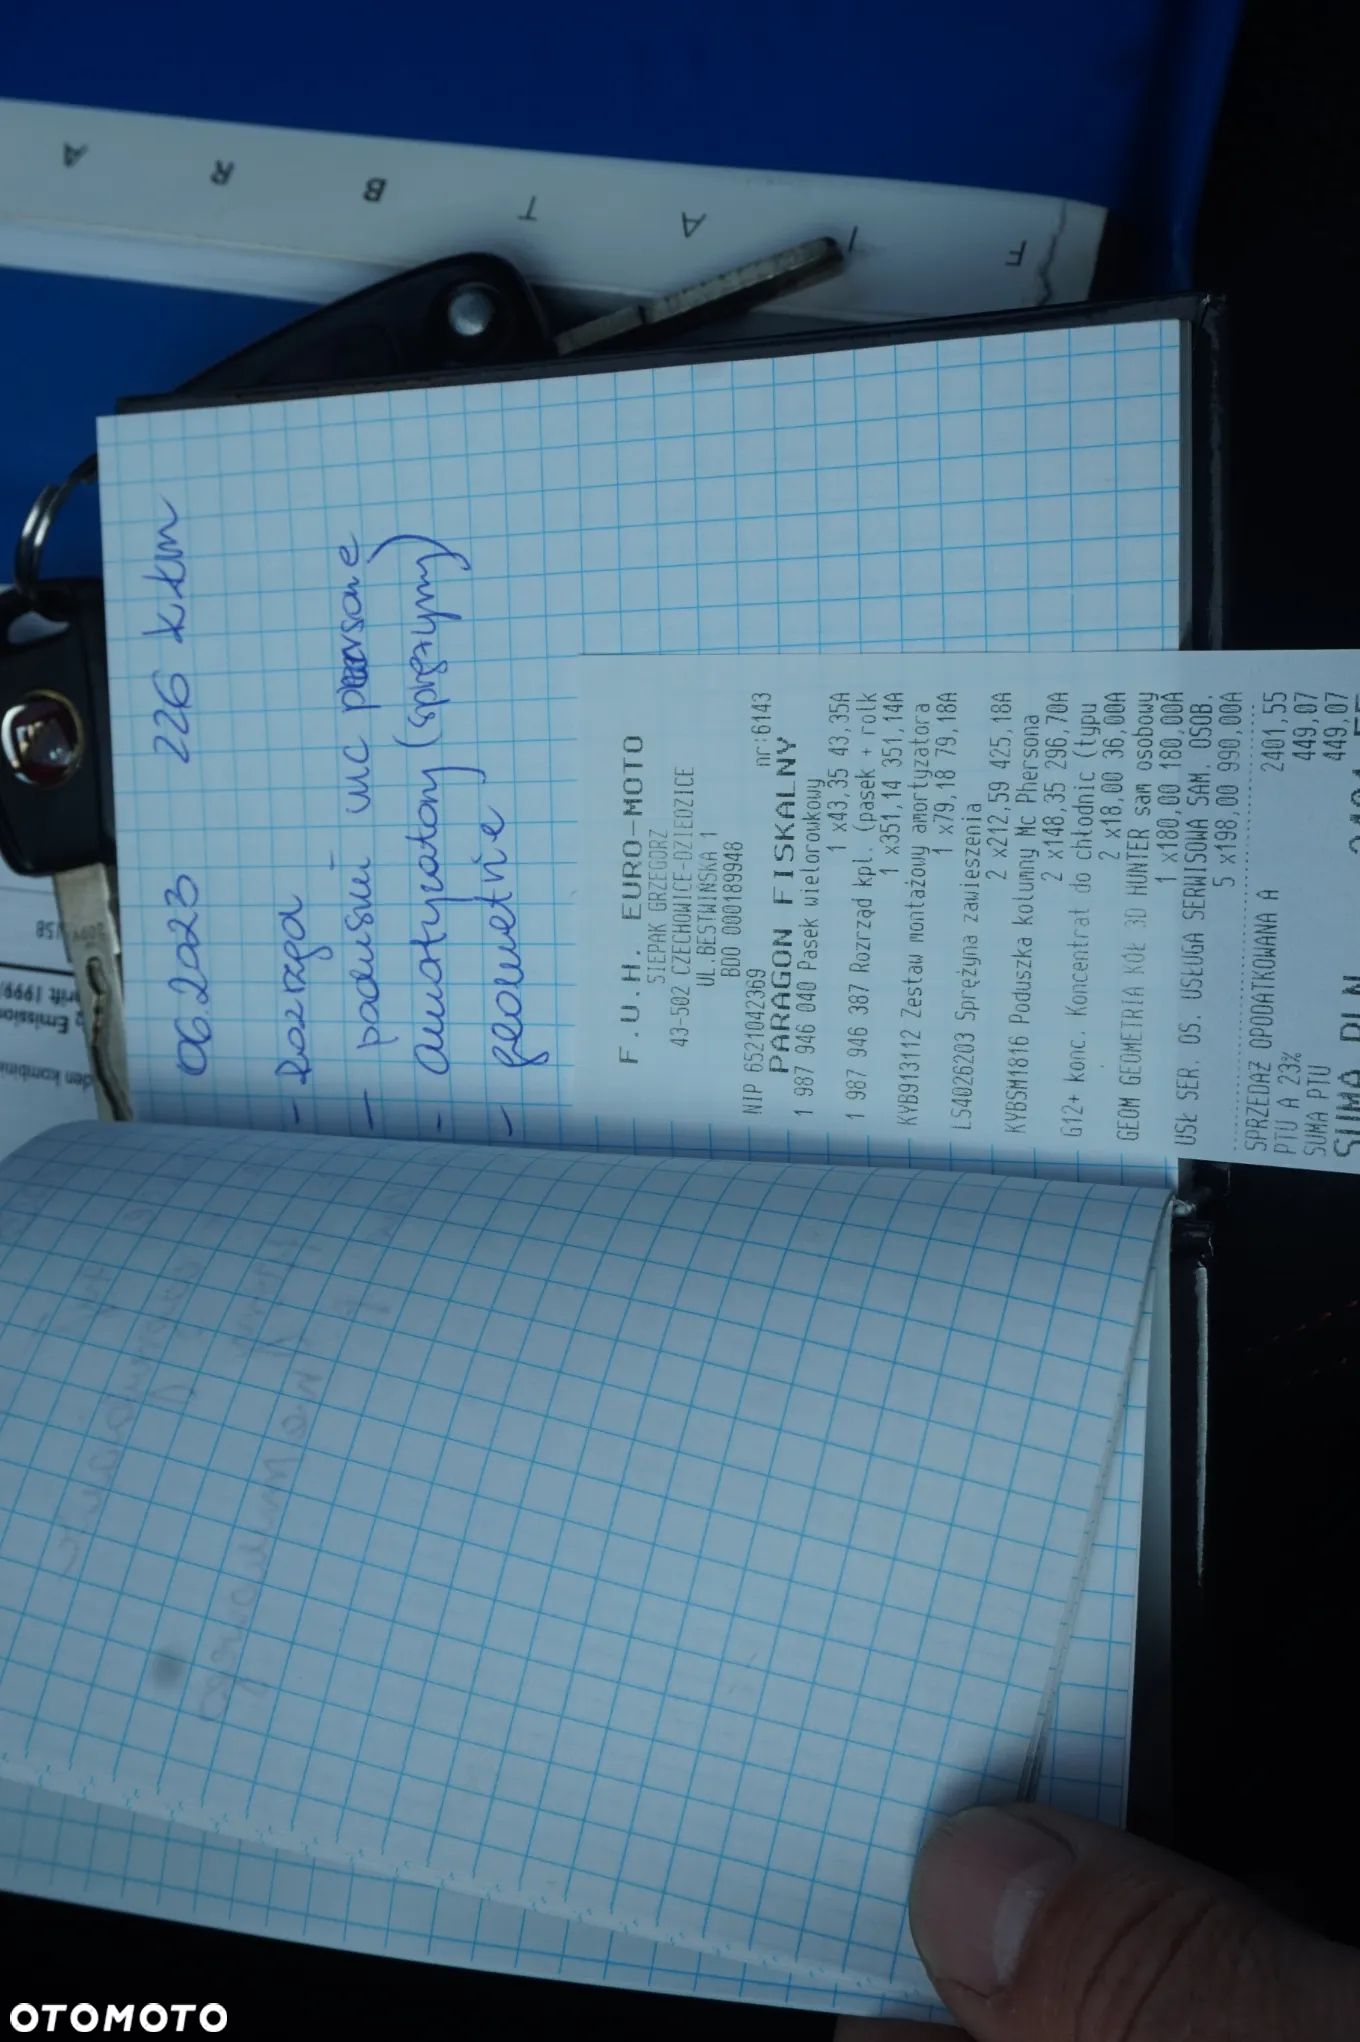 FIAT ABARTH
06.2023 226 kkm
- Rozrząd
- poduszki mc persone
- amortyzatory (sprężyny)
- geometrie
F.U.H. EURO-MOTO
SIEPAK GRZEGORZ
43-502 CZECHOWICE-DZIEDZICE
UL.BESTWIŃSKA 1
BDO 000189948
NIP 6521042369 nr:6143
PARAGON FISKALNY
1 987 946 040 Pasek wielorowkowy
1 x43,35 43,35A
1 987 946 387 Rozrząd kpl. (pasek + rolk
1 x351,14 351,14A
KYB913112 Zestaw montażowy amortyzatora
1 x79,18 79,18A
LS4026203 Sprężyna zawieszenia
2 x212,59 425,18A
KYBSM1816 Poduszka kolumny Mc Phersona
2 x148,35 296,70A
G12+ konc. Koncentrat do chłodnic (typu
2 x18,00 36,00A
GEOM GEOMETRIA KÓŁ 3D HUNTER sam osobowy
1 x180,00 180,00A
USŁ SER. OS. USŁUGA SERWISOWA SAM. OSOB.
5 x198,00 990,00A
SPRZEDAŻ OPODATKOWANA A 2401,55
PTU A 23% 449,07
SUMA PTU 449,07
SUMA PLN
OTOMOTO